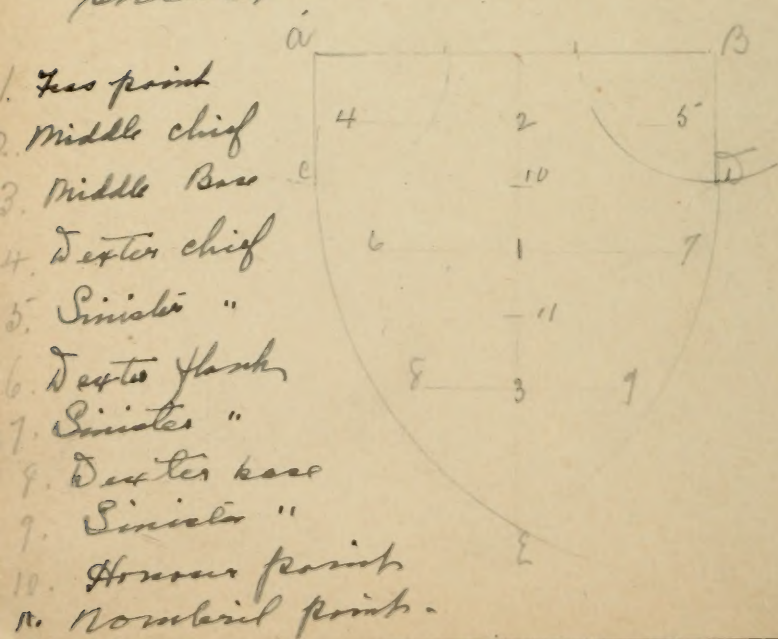 1. Fess point
2. Middle chief
3. Middle Base
4. Dexter chief
5. Sinister "
6. Dexter flank
7. Sinister "
8. Dexter base
9. Sinister "
10. Honour point
11. Nombril point.
A B
4 2 5
C 10 D
6 1 7
11
8 3 9
E